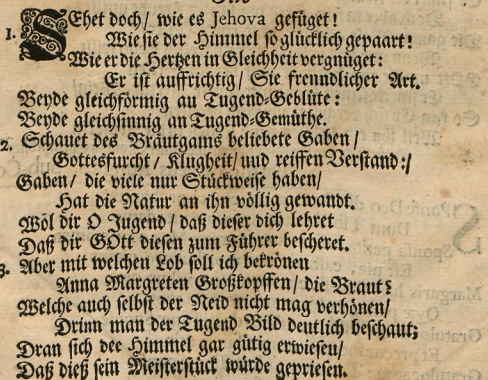 1. SEhet doch/ wie es Jehova gefüget!
Wie sie der Himmel so glücklich gepaart!
Wie er die Hertzen in Gleichheit vergnüget:
Er ist auffrichtig/ Sie frenndlicher Art.
Beyde gleichförmig au Tugend-Geblüte:
Beyde gleichsinnig an Tugend-Gemüthe.
2. Schauet des Bräutgams beliebete Gaben/
Gottesfurcht/ Klugheit/ und reiffen Verstand:/
Gaben/ die viele nur Stückweise haben/
Hat die Natur an ihn völlig gewandt.
Wol dir O Jugend/ daß dieser dich lehret
Daß dir GOtt diesen zum Führer bescheret.
3. Aber mit welchen Lob soll ich bekrönen
Anna Margreten Großkopffen/ die Braut?
Welche auch selbst der Neid nicht mag verhönen/
Drinn man der Tugend Bild deutlich beschaut;
Dran sich dee Himmel gar gütig erwiesen/
Daß dieß sein Meisterstück würde gepriesen.